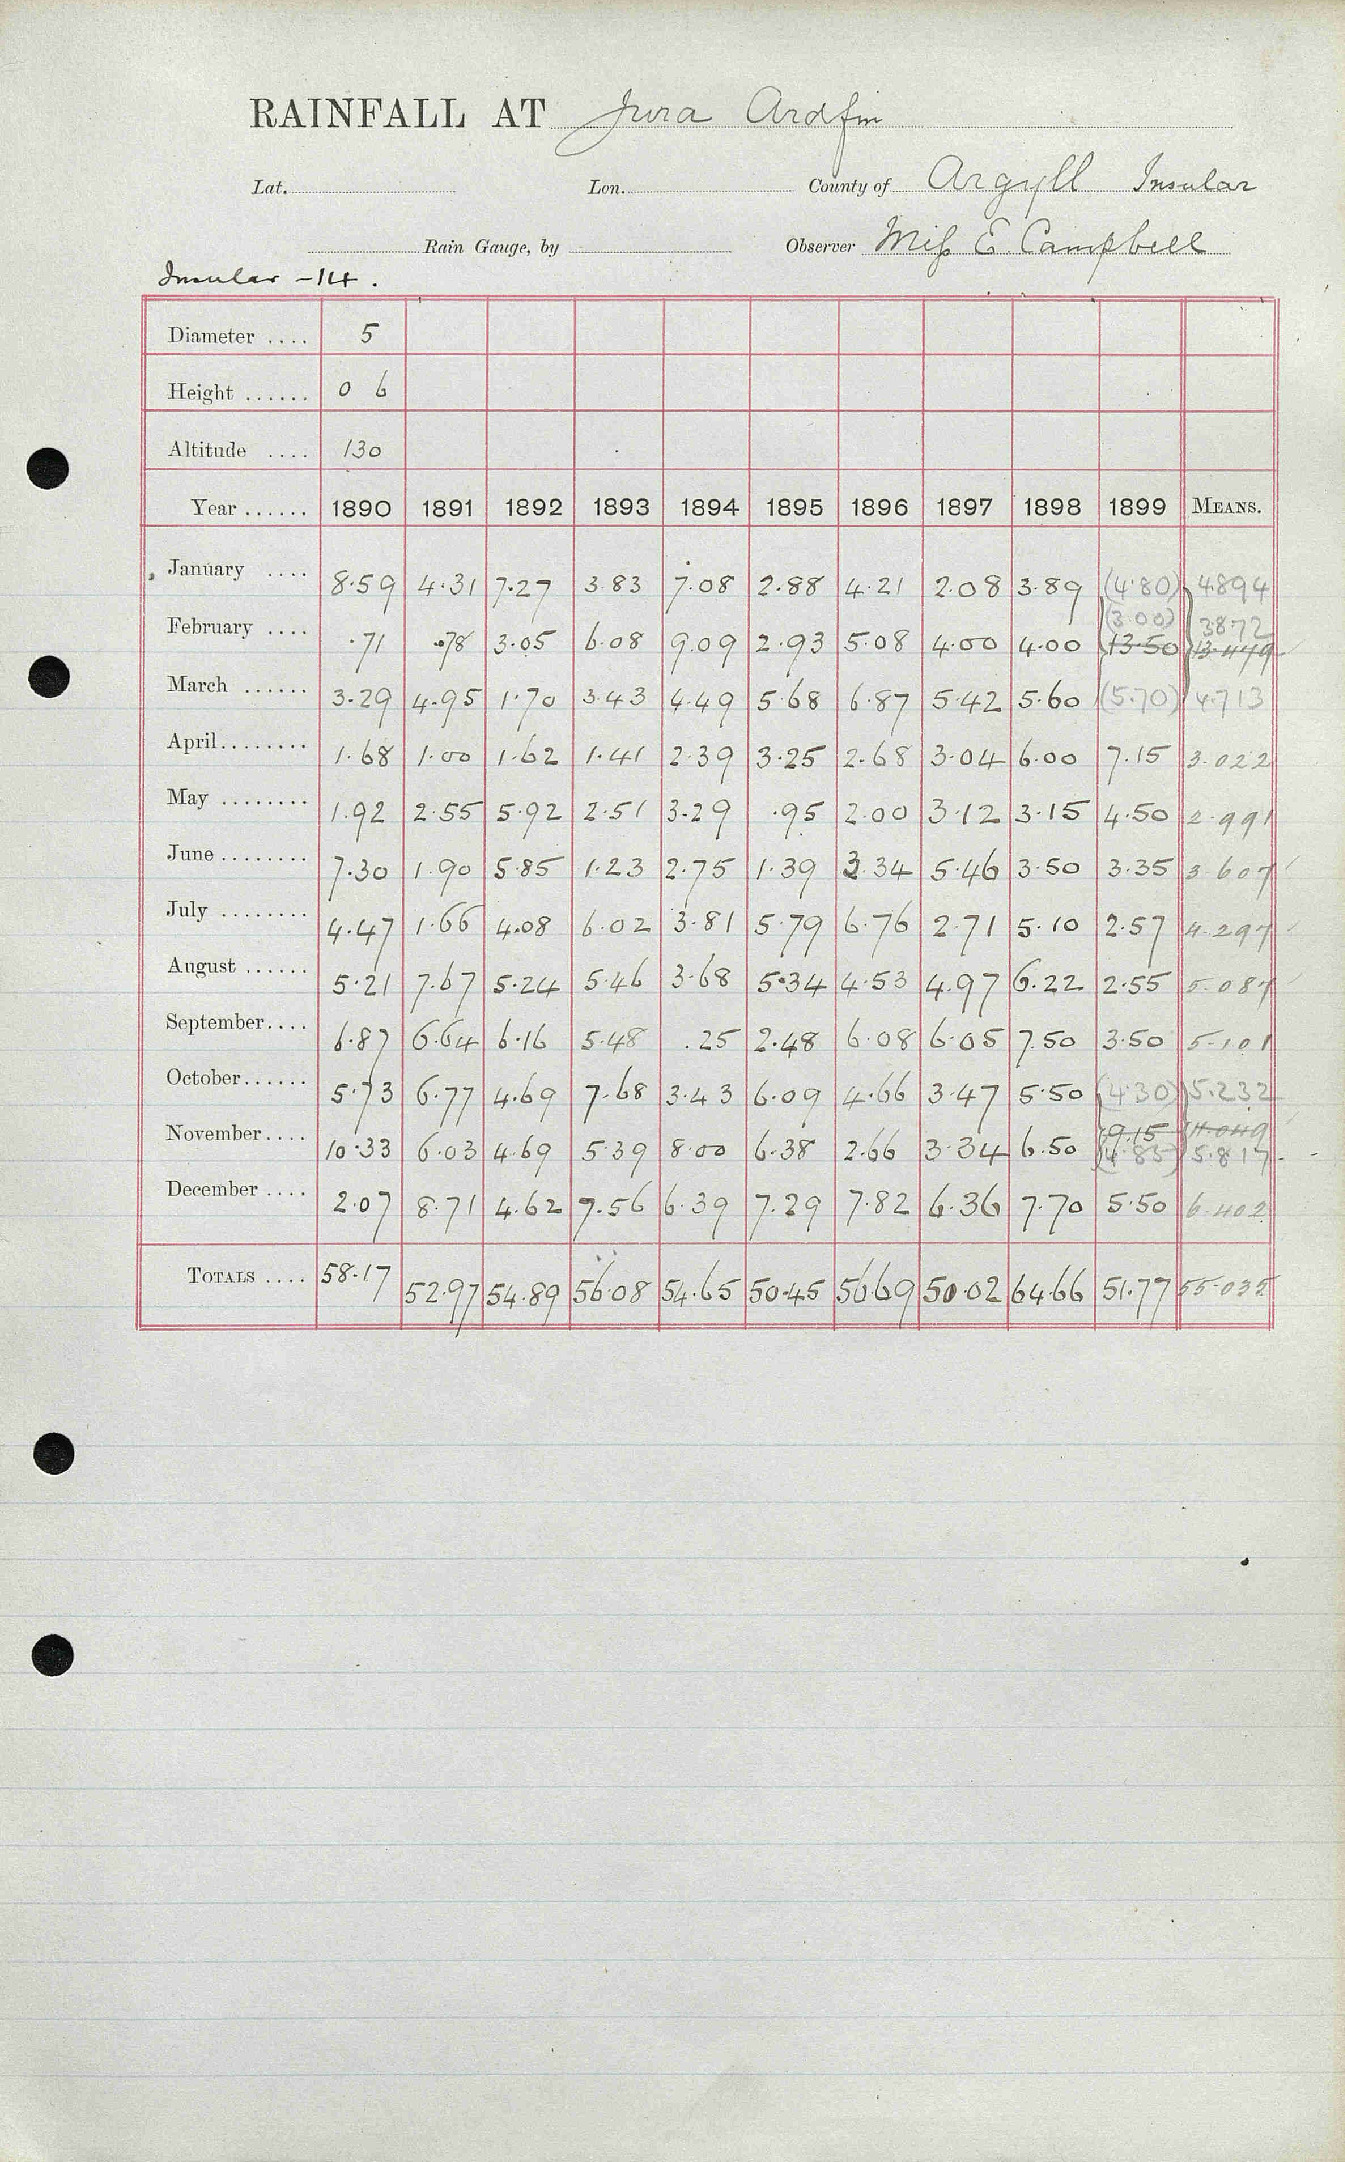 RAINFALL AT Jura Ardfin
Lat. Lon. County of Argyll Insular
Rain Gauge, by Observer Miss E Campbell
Insular - 14.
Diameter .... 5
Height ...... 0 6
Altitude .... 130
Year ...... 1890 1891 1892 1893 1894 1895 1896 1897 1898 1899 MEANS.
January .... 8.59 4.31 7.27 3.83 7.08 2.88 4.21 2.08 3.89 (4.80) 4.894
(3.00) 3.872
February .... .71 .78 3.05 6.08 9.09 2.93 5.08 4.00 4.00 13.50 13.479
March ...... 3.29 4.95 1.70 3.43 4.49 5.68 6.87 5.42 5.60 (5.70) 4.713
April........ 1.68 1.00 1.62 1.41 2.39 3.25 2.68 3.04 6.00 7.15 3.022
May ........ 1.92 2.55 5.92 2.51 3.29 .95 2.00 3.12 3.15 4.50 2.991
June ........ 7.30 1.90 5.85 1.23 2.75 1.39 3.34 5.46 3.50 3.35 3.607
July ........ 4.47 1.66 4.08 6.02 3.81 5.79 6.76 2.71 5.10 2.57 4.297
August ...... 5.21 7.67 5.24 5.46 3.68 5.34 4.53 4.97 6.22 2.55 5.087
September.... 6.87 6.64 6.16 5.48 .25 2.48 6.08 6.05 7.50 3.50 5.101
October...... 5.73 6.77 4.69 7.68 3.43 6.09 4.66 3.47 5.50 (4.30) 5.232
November.... 10.33 6.03 4.69 5.39 8.00 6.38 2.66 3.34 6.50 9.15 11.049
(4.85) 5.817
December .... 2.07 8.71 4.62 7.56 6.39 7.29 7.82 6.36 7.70 5.50 6.402
TOTALS .... 58.17 52.97 54.89 56.08 54.65 50.45 56.69 50.02 64.66 51.77 55.035